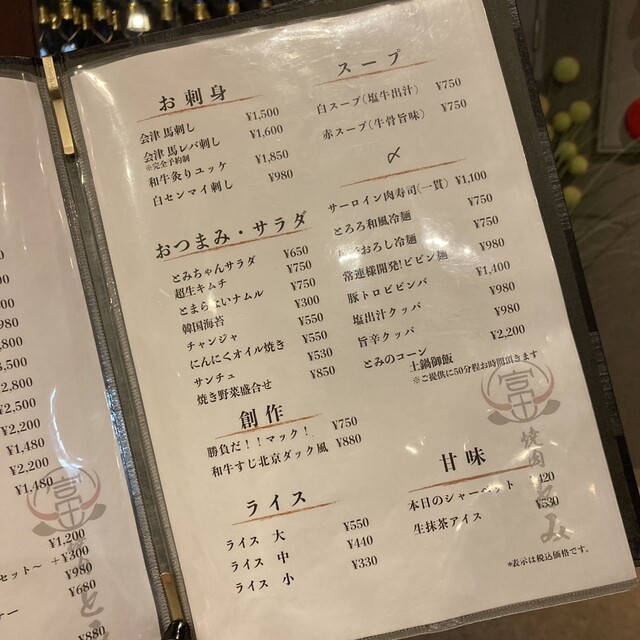 お刺身
会津 馬刺し ¥1,500
会津 馬レバ刺し ¥1,600
※完全予約制
和牛炙りユッケ ¥1,850
白センマイ刺し ¥980
おつまみ・サラダ
とみちゃんサラダ ¥650
超生キムチ ¥750
ナムル ¥750
韓国海苔 ¥300
チャンジャ ¥550
にんにくオイル焼き ¥550
サンチュ ¥530
焼き野菜盛合せ ¥850
創作
勝負だ！！マック！ ¥750
和牛すじ北京ダック風 ¥880
ライス
ライス 大 ¥550
ライス 中 ¥440
ライス 小 ¥330
スープ
白スープ（塩牛出汁） ¥750
赤スープ（牛骨旨味） ¥750
〆
サーロイン肉寿司（一貫） ¥1,100
とろろ和風冷麺 ¥750
おろし冷麺 ¥750
常連様開発！ビビン麺 ¥980
豚トロビビンバ ¥1,400
塩出汁クッパ ¥980
旨辛クッパ ¥980
とみのコーン土鍋御飯 ¥2,200
※ご提供に50分程お時間頂きます
甘味
本日のシャーベット
生抹茶アイス ¥530
*表示は税込価格です。
焼肉とみ
¥2,500
¥2,200
¥1,480
¥2,200
¥1,480
¥1,200
セット～ +¥300
¥980
¥680
¥880